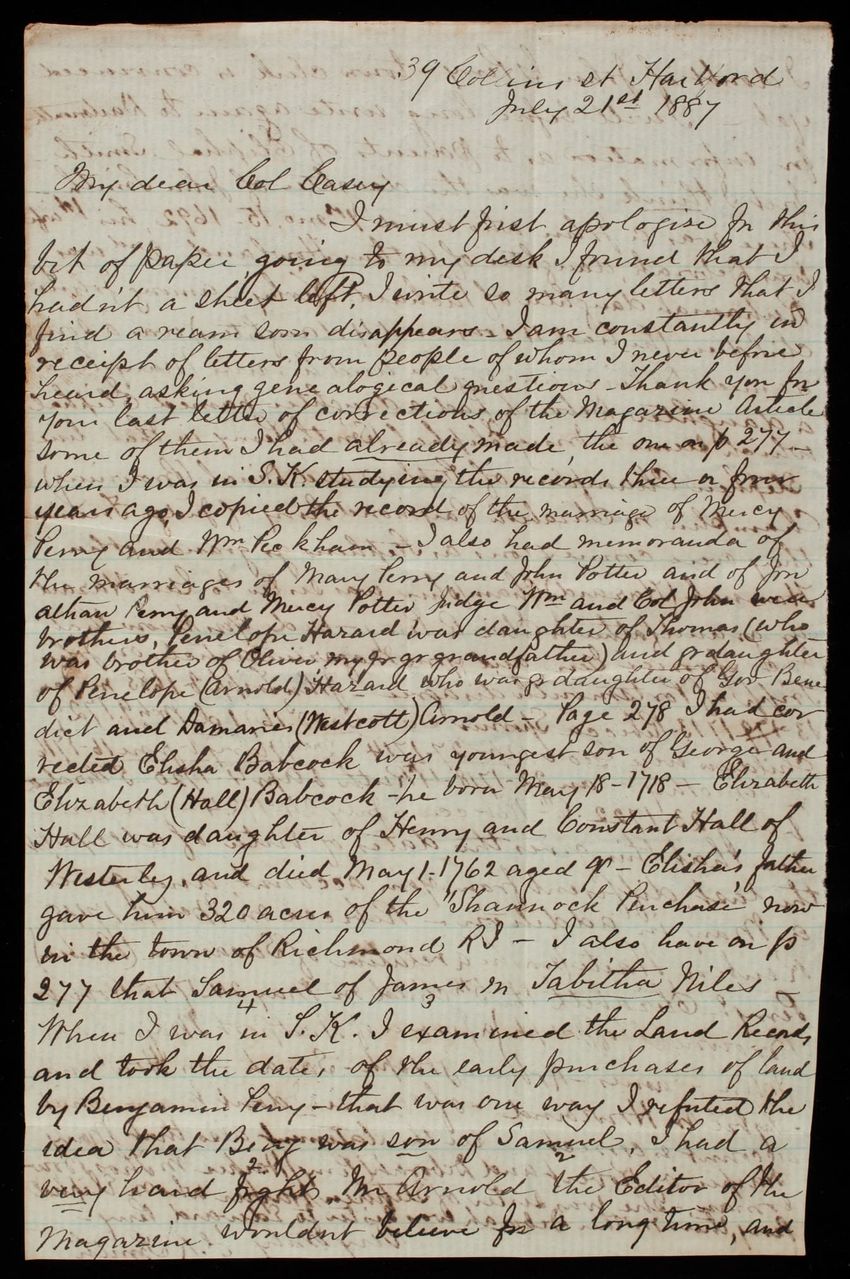 39 Collins st Hartford
July 21st 1887
My dear Col Casey
I must first apologise for this
bit of paper, going to my desk I found that I
hadn't a sheet left, I write so many letters that I
find a ream soon disappears - I am constantly in
receipt of letters from people of whom I never before
heard, asking genealogical questions - Thank you for
your last letter of corrections of the Magazine Article
some of them I had already made, the one on p 277 -
when I was in S. K. studying the records three or four
years ago, I copied the record of the marriage of Mercy
Perry and Wm Peckham - I also had memoranda of
the marriages of Mary Perry and John Potter and of Jon
athan Perry and Mercy Potter Judge Wm and Col John were
brothers, Penelope Hazard was daughter of Thomas (who
was brother of Oliver my gr gr grandfather) and gr daughter
of Penelope (Arnold) Hazard who was gr daughter of Gov Bene
dict and Damaris (Westcott) Arnold - Page 278 I had cor
rected Elisha Babcock was youngest son of George and
Elizabeth (Hall) Babcock - he born May 18 - 1718 - Elizabeth
Hall was daughter of Henry and Constant Hall of
Westerly, and died May 1 - 1762 aged - Elisha's father
gave him 320 acres of the "Shannock Purchase" now
in the town of Richmond R I - I also have on p
277 that Samuel 4 of James 3 m Tabitha Niles -
When I was in S. K. I examined the Land Records
and took the dates of the early purchases of land
by Benjamin Perry - that was one way I refuted the
idea that Benj 2 was son of Samuel 2, I had a
very hard fight, Mr Arnold the Editor of the
Magazine wouldn't believe for a long time, and